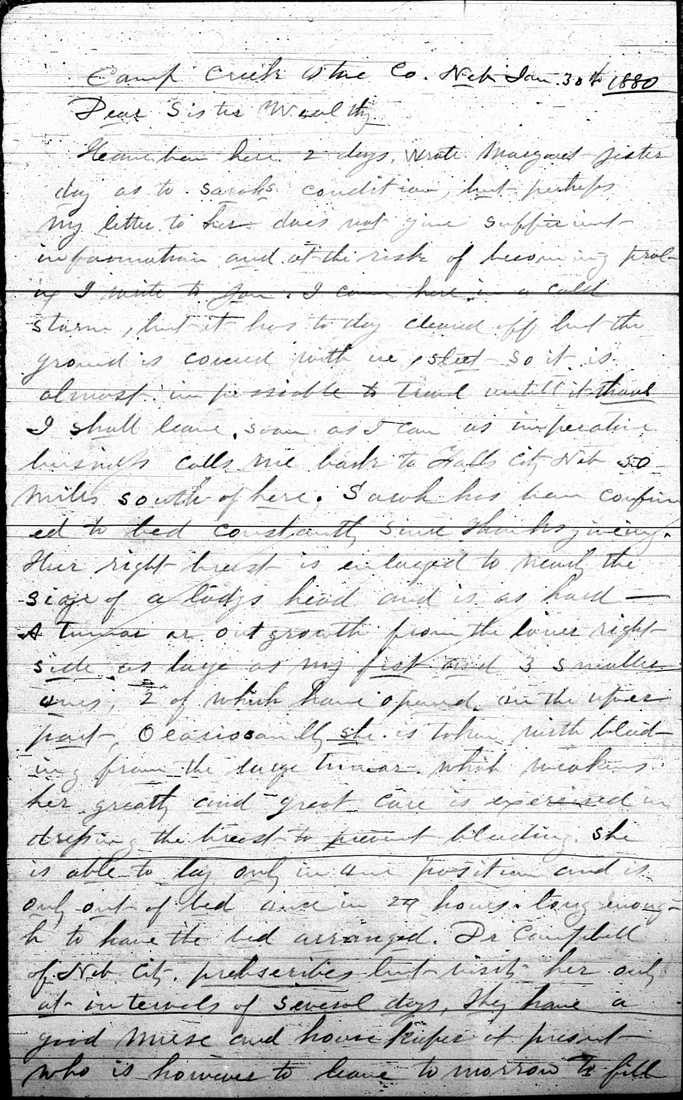 Camp Creek Otoe Co. Neb Jan. 30th 1880
Dear Sister Wealthy
Have been here 2 days, wrote Margaret yester
day as to Sarahs condition, but perhaps
my letter to her does not give sufficient
information and at the risk of becoming prol-
ix I write to you. I came here in a cold
storm, but it has to day cleared off but the
ground is covered with ice, sleet so it is
almost impossible to travel untill it thaws
I shall leave, soon as I can as imperative
business calls me back to Falls City Neb 50
miles south of here. Sarah has been confin
ed to bed constantly since thanksgiving.
Her right breast is enlarged to nearly the
size of a ladys head and is as hard —
A tumor or outgrowth from the lower right
side as large as my fist and 3 smaller
ones, 2 of which have opened, in the uper
part, Ocasiosanlly she is taken with bleed-
ing from the large tumor. which weakens
her greatly and great care is exersised in
dressing the breast to prevent bleeding. She
is able to lay only in one position and is
only out of bed once in 24 hours. long enoug-
h to have the bed arranged. Dr Campbell
of Neb City. prebscribes but visits her only
at intervals of several days, they have a
good nurse and house keeper at present
who is however to leave to morrow to fill